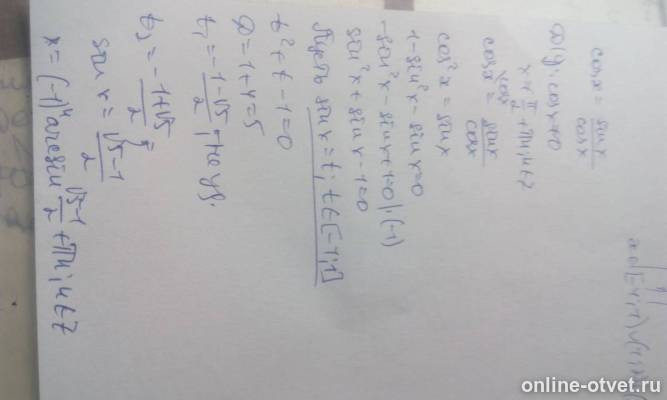 cosx = sinx/cosx
ОДЗ: cosx≠0
x ≠ π/2 + πn; n∈Z
cosx = sinx/cosx
cos²x = sinx
1-sin²x-sinx=0
-sin²x-sinx+1=0|·(-1)
sin²x+sinx-1=0
Пусть sinx=t; t∈[-1;1]
t²+t-1=0
D=1+4=5
t₁ = (-1-√5)/2;
t₂ = (-1+√5)/2;
sin x = (√5-1)/2
x = (-1)ⁿ arcsin (√5-1)/2 + πn; n∈Z
online-otvet.ru